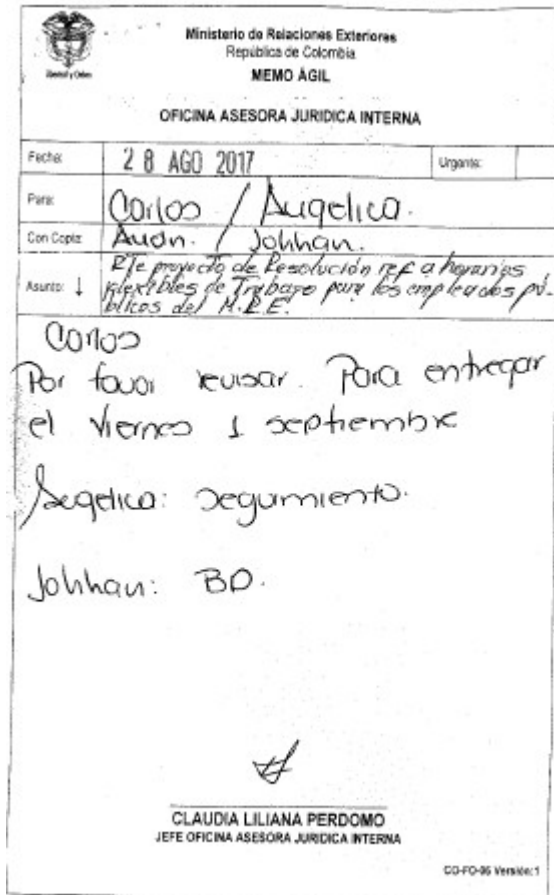 Libertad y Orden
Ministerio de Relaciones Exteriores
República de Colombia
MEMO ÁGIL
OFICINA ASESORA JURIDICA INTERNA
Fecha: 28 AGO 2017 Urgente:
Para: Carlos / Angelica.
Con Copia: / Johhan.
Asunto: ↓ Rte proyecto de Resolución ref a horarios
flexibles de Trabajo para los empleados pú-
blicos del M.R.E.
Carlos
Por favor revisar. Para entregar
el viernes 1 septiembre
Angelica: Seguimiento.
Johhan: BD.
CLAUDIA LILIANA PERDOMO
JEFE OFICINA ASESORA JURIDICA INTERNA
CO-FO-06 Versión:1